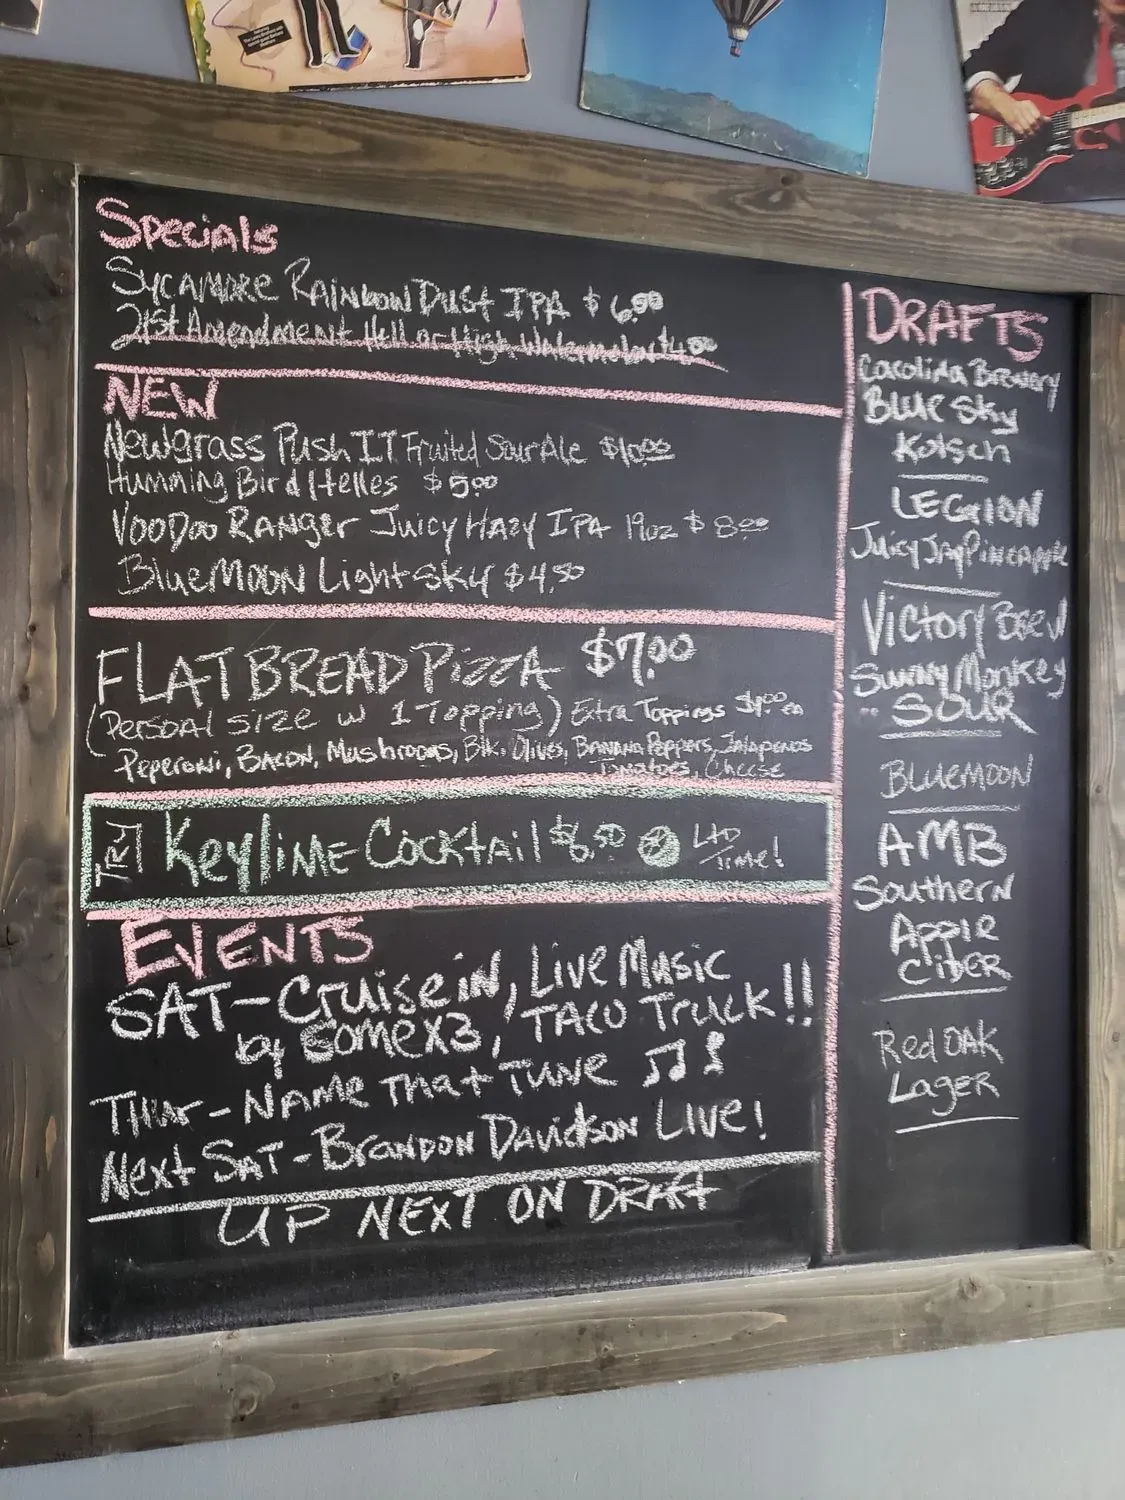 Specials
Sycamore Rainbow Dust IPA $6.00
21st Amendment Hell or High Watermelon $4.00
NEW
Newgrass Push IT Fruited Sour Ale $10.00
Humming Bird Helles $5.00
VooDoo Ranger Juicy Hazy IPA 19oz $8.00
BlueMOON Light Sky $4.50
FLAT BREAD PizzA $7.00
(Personal size w 1 Topping) Extra Toppings $1.00 ea
Peperoni, Bacon, Mushrooms, Blk. Olives, Banana Peppers, Jalapenos
Tomatoes, Cheese
TRY Keylime Cocktail $6.50 LTD
Time!
EVENTS
SAT - Cruise in, Live Music
by Somex3, TACO Truck!!
Thur - Name That Tune
Next SAT - Brandon Davidson Live!
UP NEXT ON DRAFT
DRAFTS
Carolina Brewery
Blue Sky
Kolsch
LEGION
Juicy Jay Pineapple
Victory Beew
Sunny Monkey
SOUR
BLUEMOON
AMB
Southern
Apple
CiDER
Red OAK
Lager